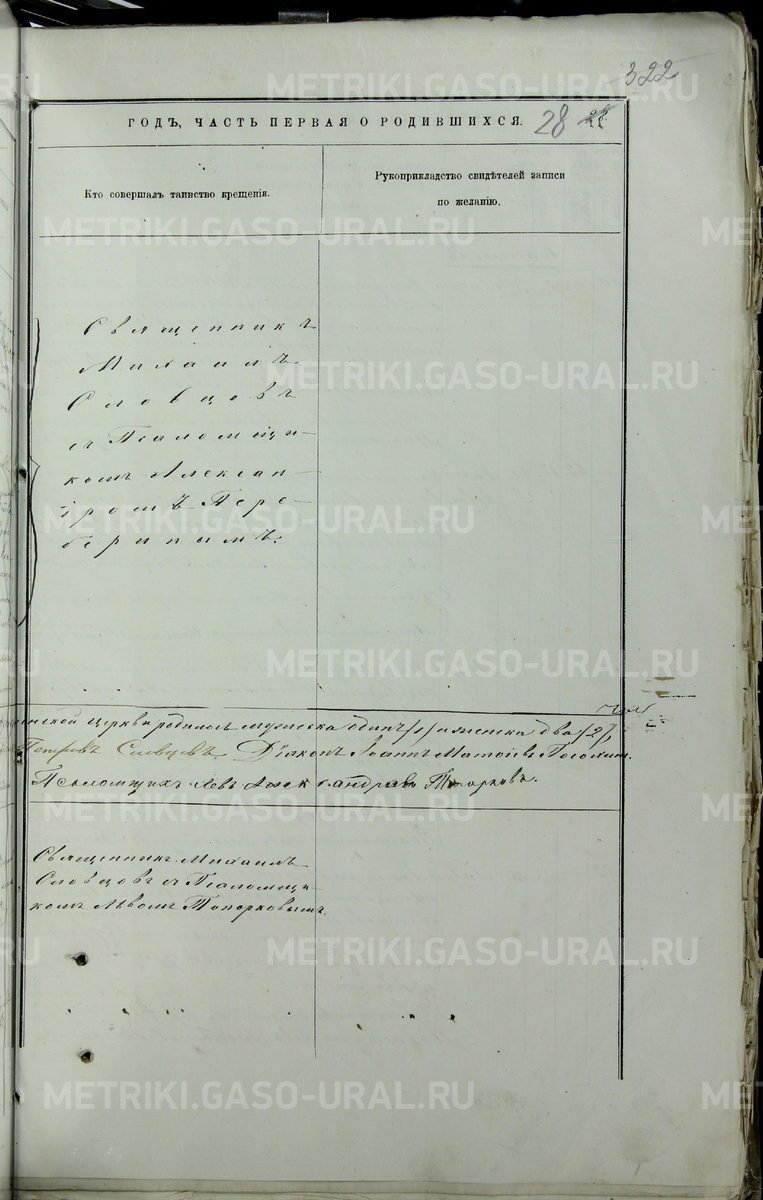 322
ГОДЪ, ЧАСТЬ ПЕРВАЯ О РОДИВШИХСЯ.
28
Кто совершалъ таинство крещенія.
Рукоприкладство свидѣтелей записи
по желанію.
Священникъ
Михаилъ
Словцовъ
съ Псаломщи-
комъ Алексан-
дромъ Пере-
беринымъ.
церкви родилось мужеска одинъ /1/ и женска два /2/,
Петровъ Словцовъ. Діаконъ Іоаннъ
Псаломщикъ Левъ Александровъ Топорковъ.
Священникъ Михаилъ
Словцовъ съ Псаломщи-
комъ Львомъ Топорковымъ.
METRIKI.GASO-URAL.RU